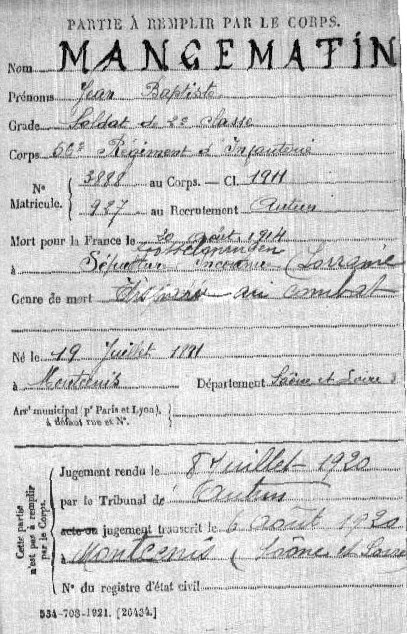 PARTIE À REMPLIR PAR LE CORPS.
Nom MANGEMATIN
Prénoms Jean Baptiste
Grade Soldat de 2e classe
Corps 60e Régiment d'Infanterie
N° Matricule. { 3888 au Corps. — Cl. 1911
927 au Recrutement Autun
Mort pour la France le 20 août 1914
à Sépulture inconnue (Lorraine
Genre de mort Disparu au combat
Né le 19 Juillet 1891
à Montcenis Département Saône et Loire
Arrt municipal (pr Paris et Lyon), à défaut rue et N°.
Cette partie n'est pas à remplir par le Corps.
Jugement rendu le 8 Juillet 1920
par le Tribunal de Autun
acte ou jugement transcrit le 6 août 1920
à Montcenis (Saône et Loire
N° du registre d'état civil
534-708-1921. [26434.]